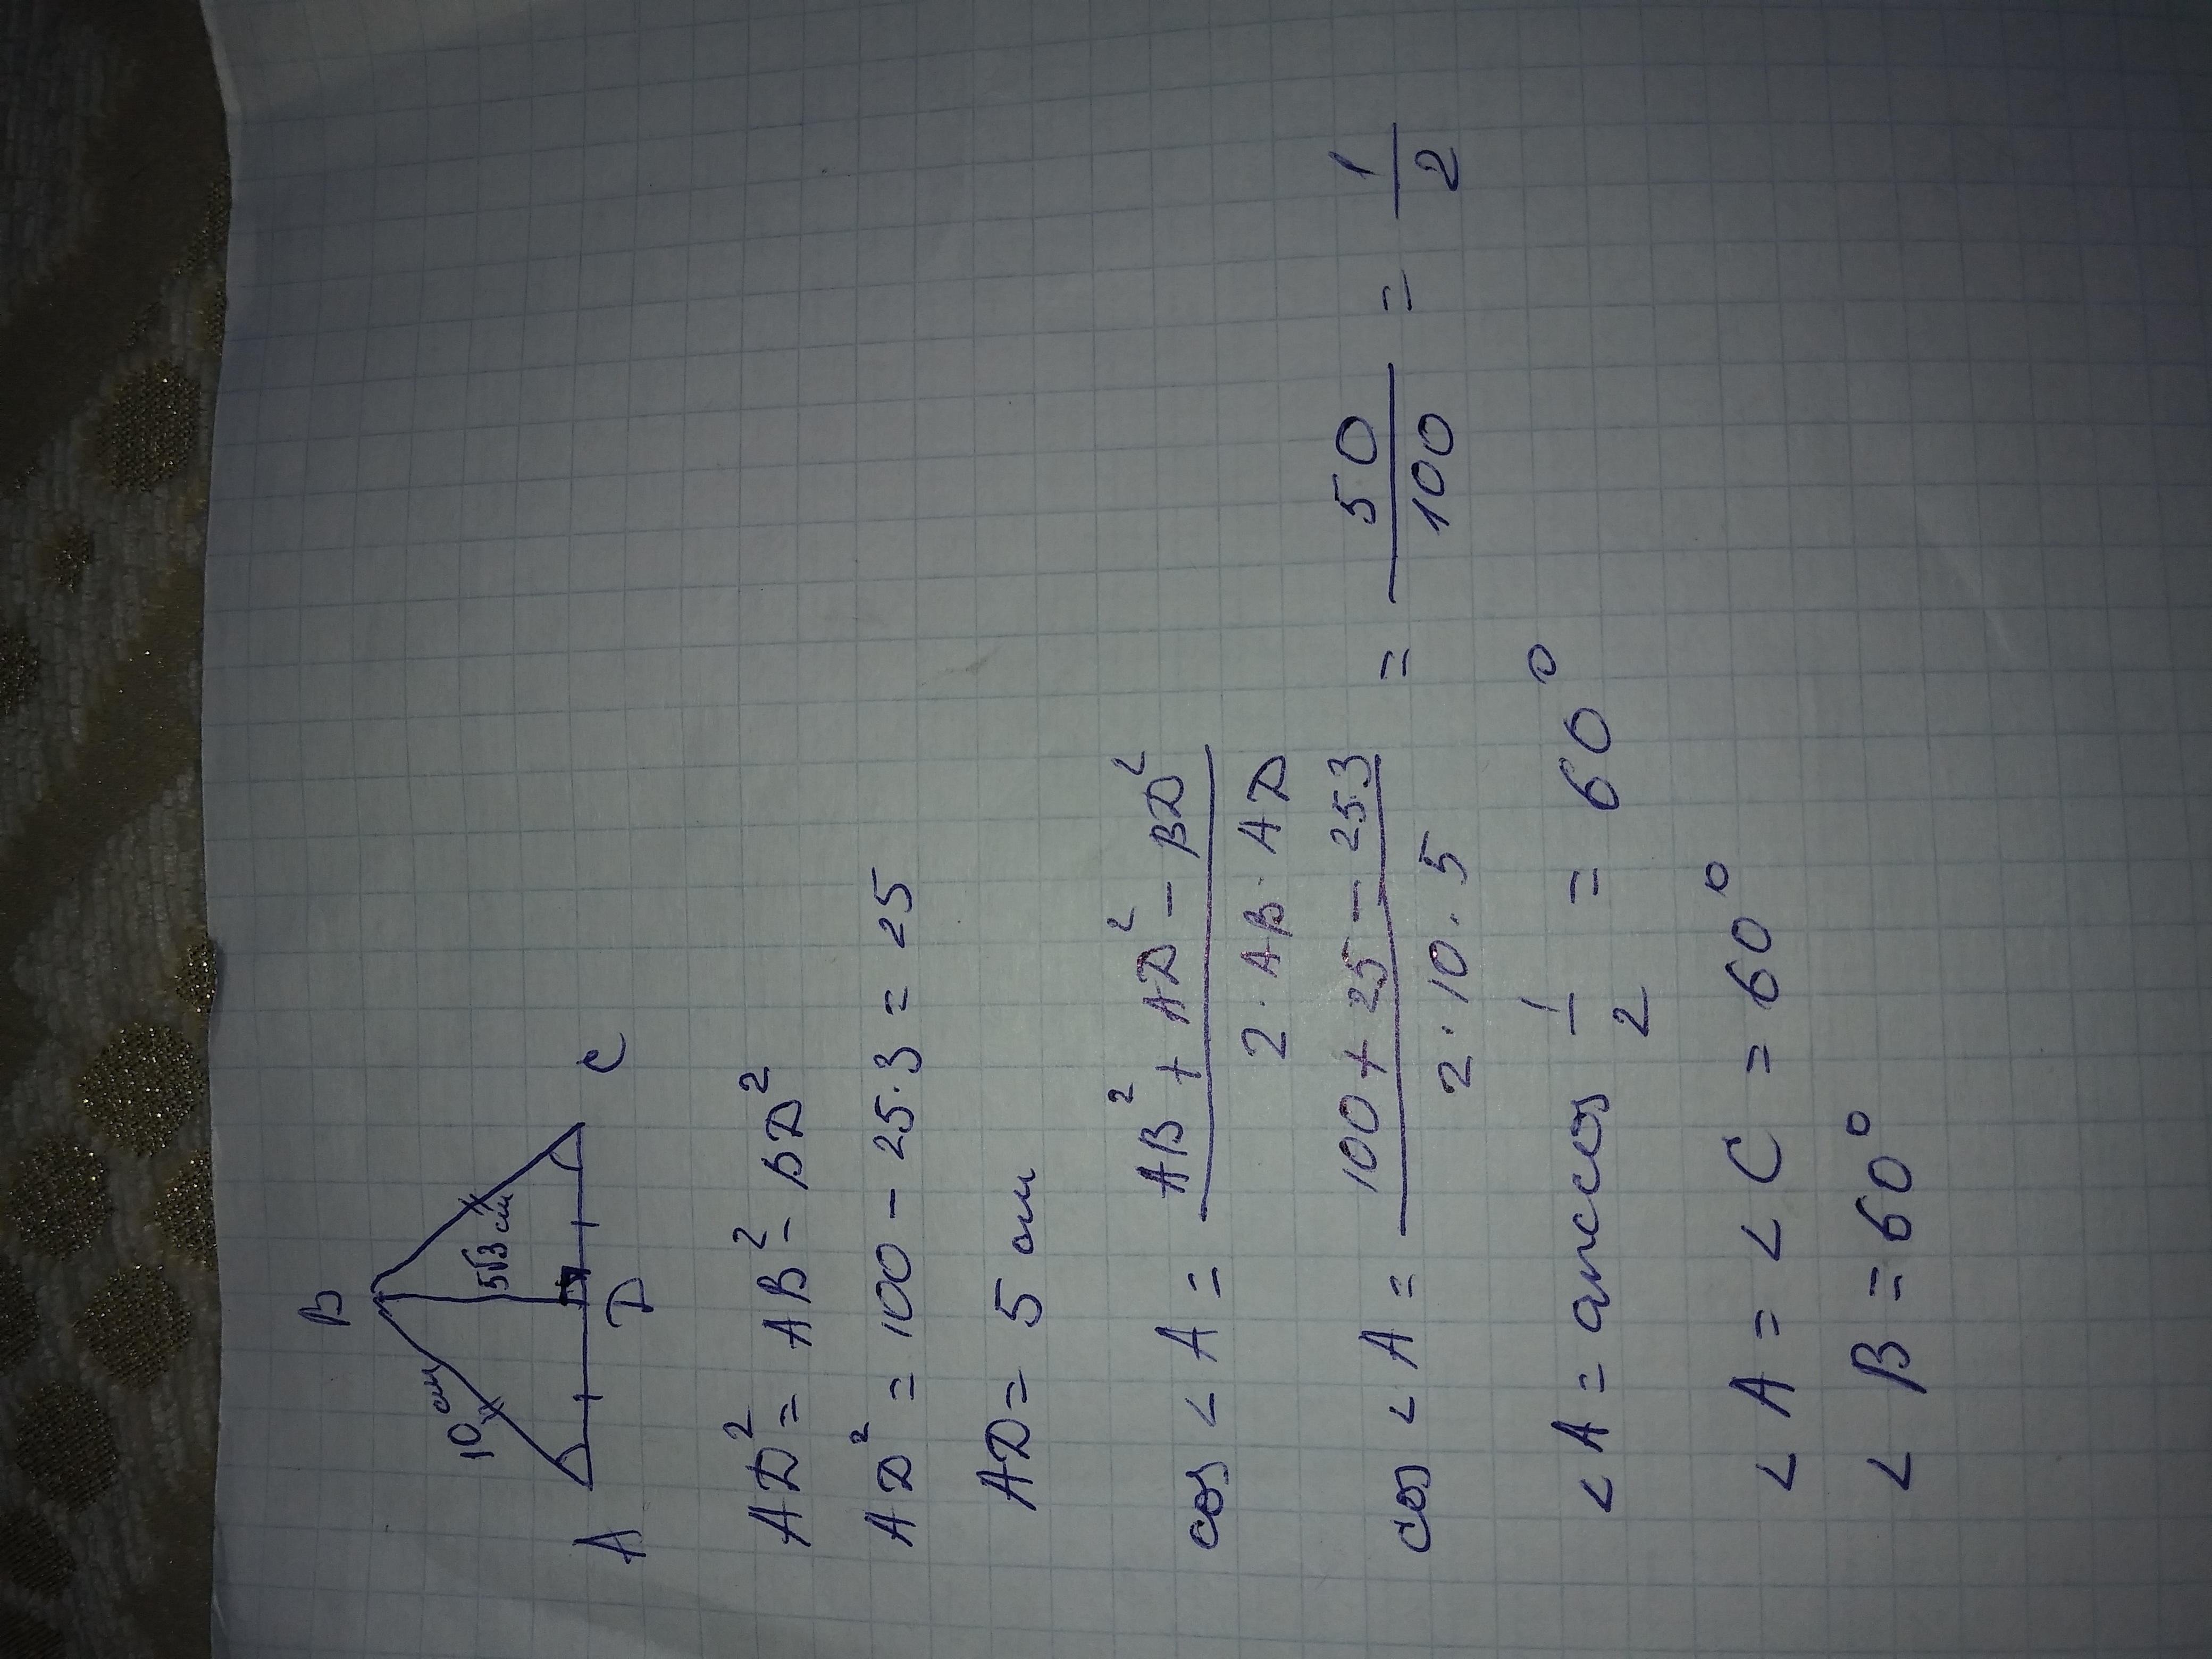 B
10 см
5√3 см
A D C
AD² = AB² - BD²
AD² = 100 - 25·3 = 25
AD = 5 см
cos ∠A = (AB² + AD² - BD²) / (2·AB·AD)
cos ∠A = (100 + 25 - 25·3) / (2·10·5) = 50/100 = 1/2
∠A = arccos 1/2 = 60°
∠A = ∠C = 60°
∠B = 60°